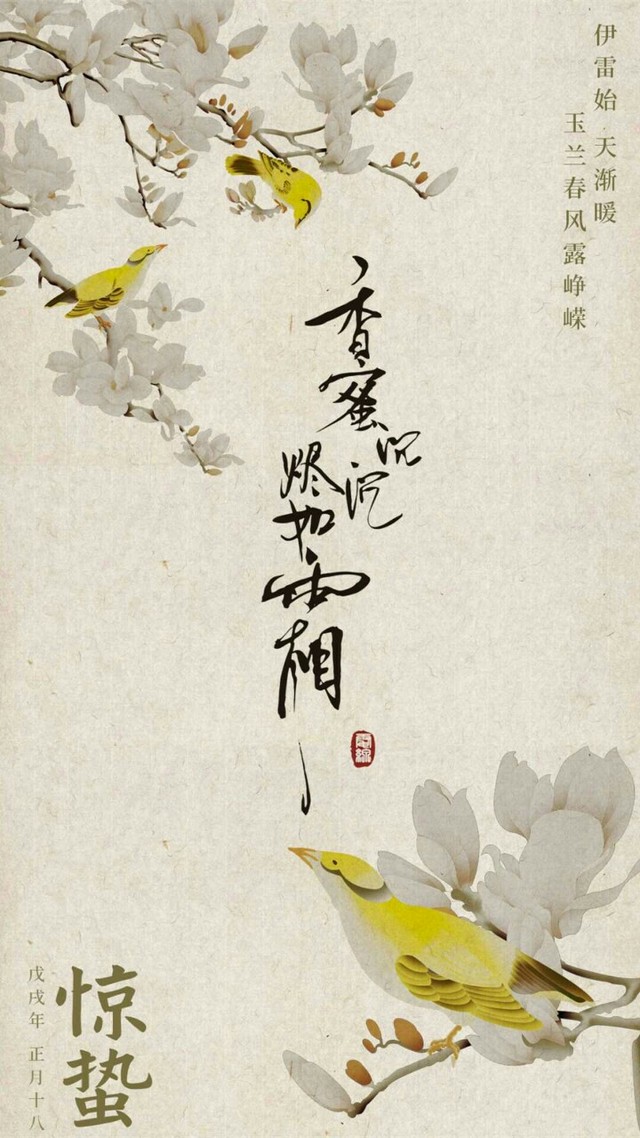 伊雷始 天渐暖
玉兰春风露峥嵘
香蜜沉沉
烬如霜
惊蛰
戊戌年 正月十八